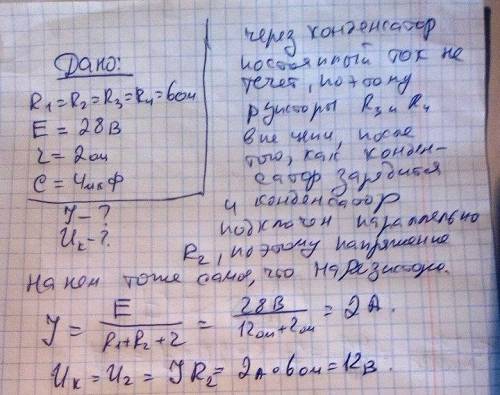 Дано:
R1=R2=R3=R4=6ом
E = 28В
r = 2ом
C = 4мкФ
J – ?
Uк – ?
через конденсатор
постоянный ток не
течет, поэтому
резисторы R3 и R4
вне цепи, после
того, как конден-
сатор зарядится
и конденсатор
подключен параллельно
R2, поэтому напряжение
на нем тоже самое, что на резисторе.
J = E / (R1+R2+r) = 28В / (12ом+2ом) = 2А.
Uк = U2 = JR2 = 2А∘6ом=12В.